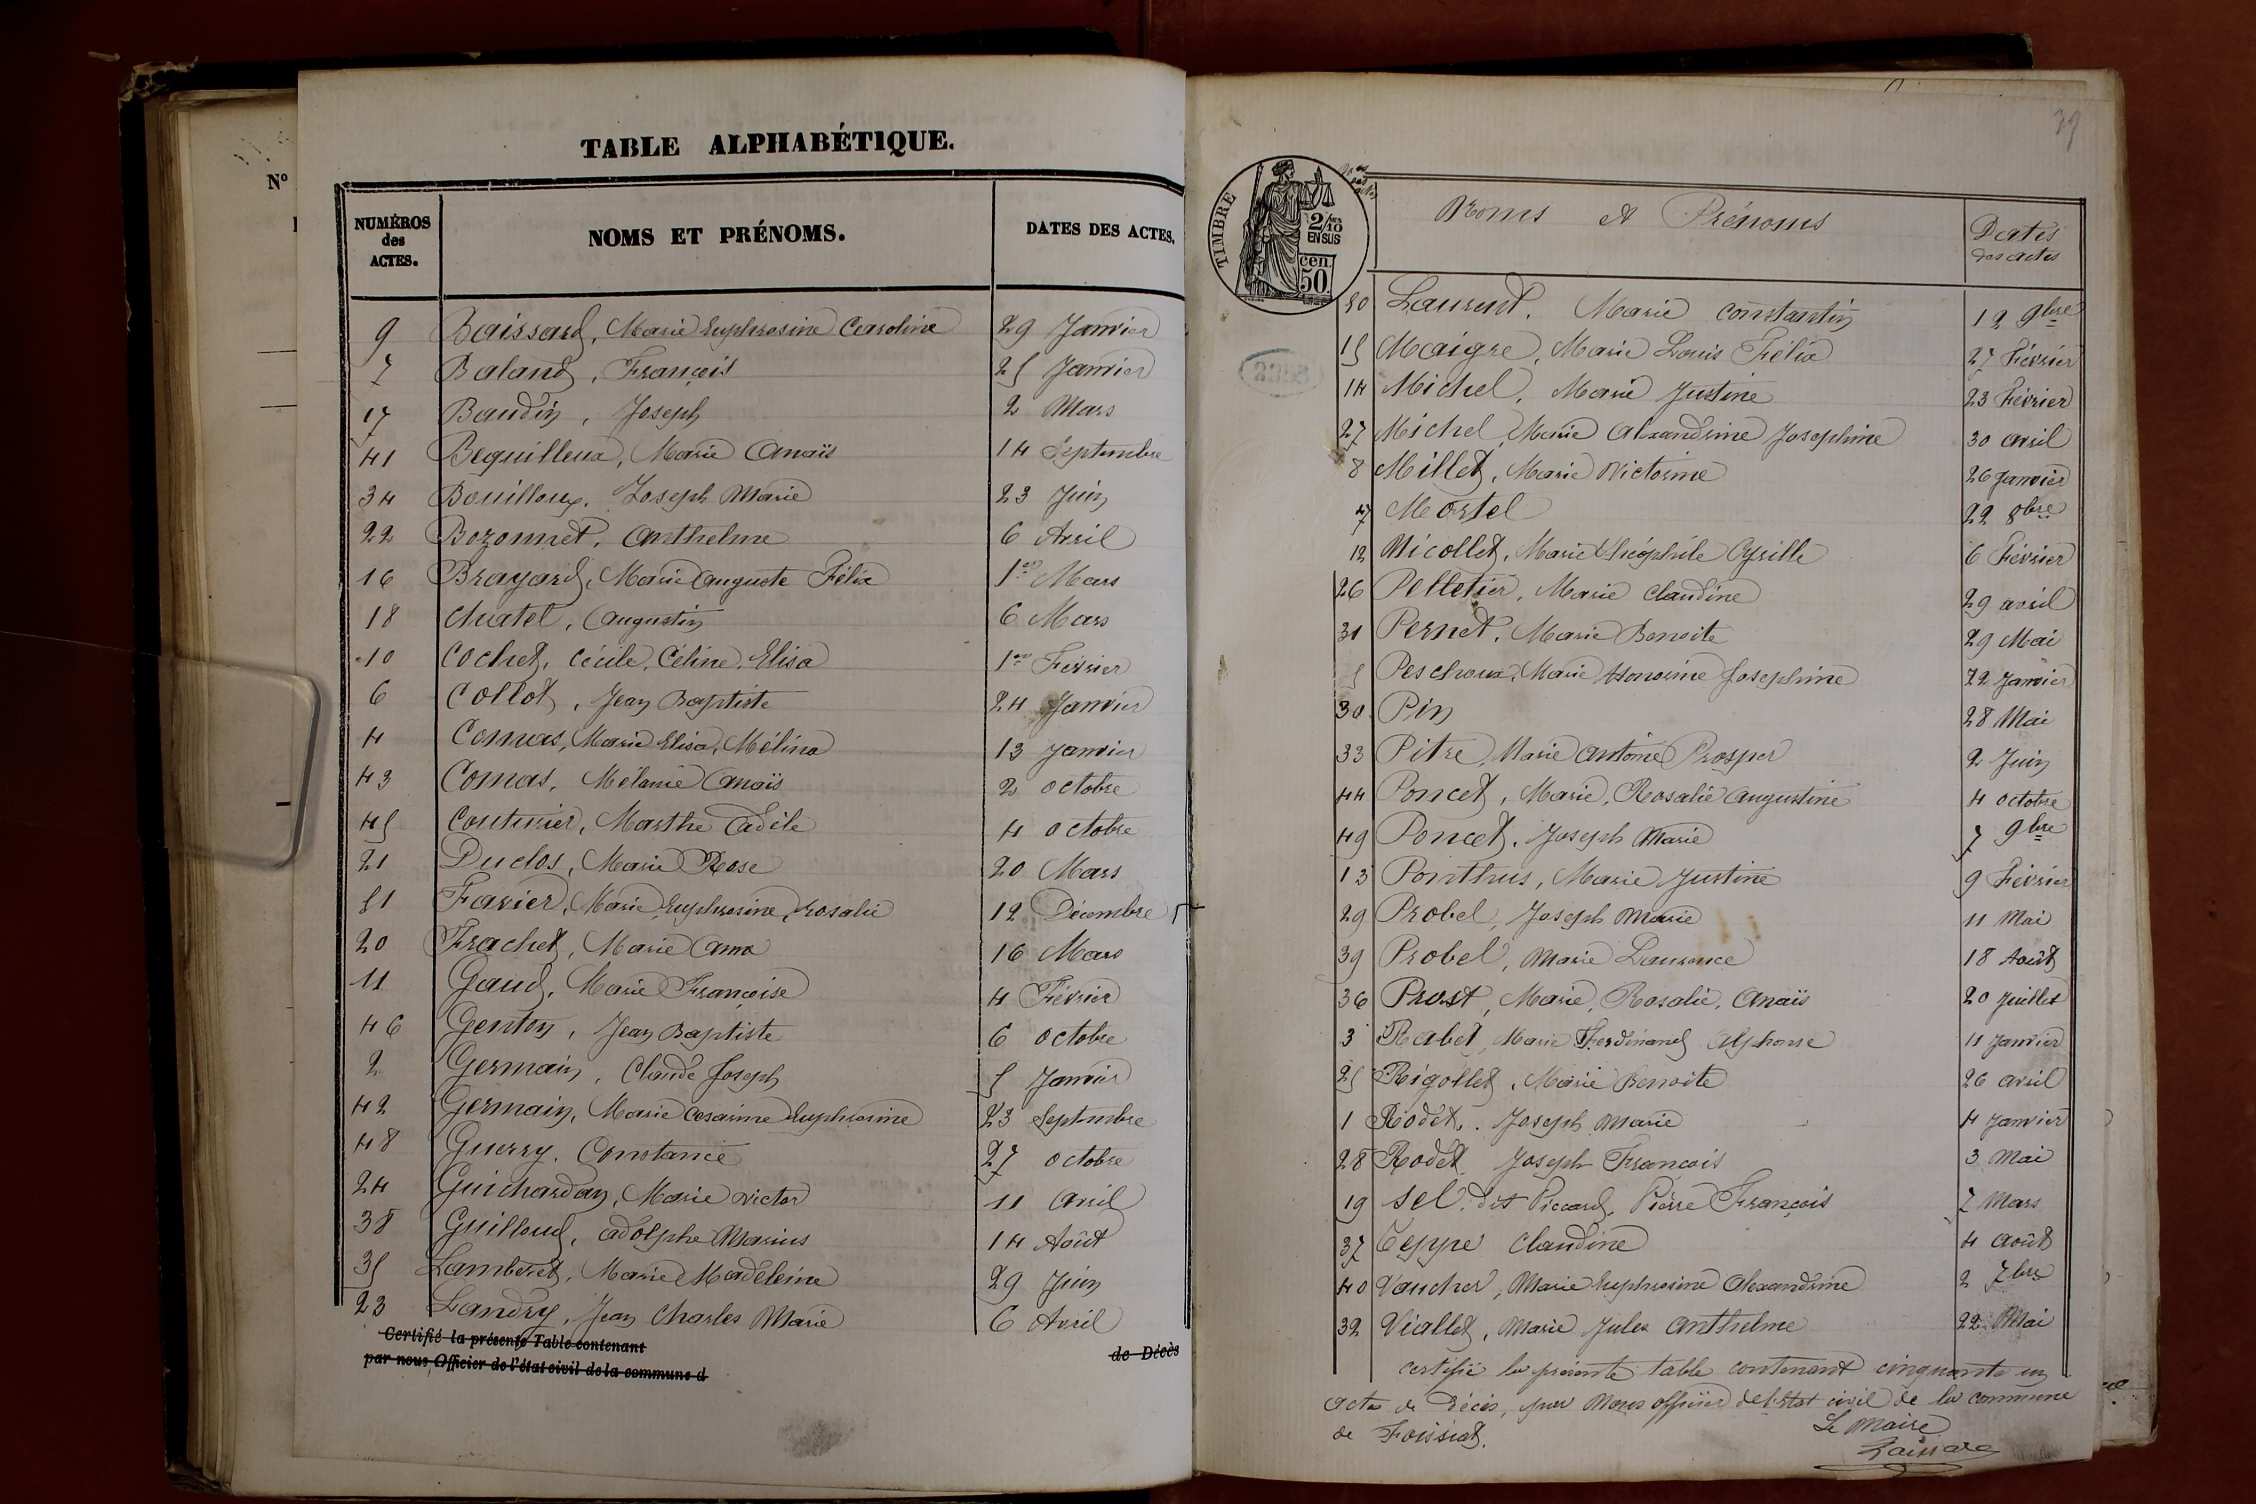 Nº
TABLE ALPHABÉTIQUE.
NUMÉROS des ACTES. NOMS ET PRÉNOMS. DATES DES ACTES.
9 Baissard, Marie Euphrosine Caroline 29 Janvier
7 Baland, François 25 Janvier
17 Baudin, Joseph 2 Mars
41 Bequilleux, Marie Anaïs 14 Septembre
34 Bouilloux, Joseph Marie 23 Juin
22 Bozonnet, Anthelme 6 Avril
16 Brayard, Marie Auguste Félix 1er Mars
18 Chatel, Augustin 6 Mars
10 Cochet, Cécile, Céline, Elisa 1er Février
6 Collot, Jean Baptiste 24 Janvier
4 Comas, Marie Elisa, Mélina 13 Janvier
43 Comas, Mélanie Anaïs 2 octobre
45 Couturier, Marthe Adèle 4 octobre
21 Duclos, Marie Rose 20 Mars
51 Favier, Marie Euphrosine, rosalie 12 Décembre
20 Frachet, Marie Anna 16 Mars
11 Gaud, Marie Françoise 4 Février
46 Genton, Jean Baptiste 6 octobre
2 Germain, Claude Joseph 5 Janvier
42 Germain, Marie Cesarine Euphrosine 23 Septembre
48 Guerry, Constance 27 octobre
24 Guichardan, Marie Victor 11 Avril
38 Guilloud, Adolphe Marius 14 Août
35 Lamberet, Marie Madeleine 29 Juin
23 Landry, Jean Charles Marie 6 Avril
Certifié la présente Table contenant de Décès
par nous, Officier de l'état civil de la commune d
39
TIMBRE 2/10 EN SUS cen. 50
Noms et Prénoms Dates des actes
50 Laurent, Marie Constantin 12 9bre
15 Maigre, Marie Louis Félix 27 Février
14 Michel, Marie Justine 23 Février
27 Michel, Marie Alexandrine Josephine 30 avril
8 Millet, Marie Victorine 26 Janvier
47 Mortel 22 8bre
12 Nicollet, Marie Théophile Cyrille 6 Février
26 Pelletier, Marie Claudine 29 avril
31 Pernet, Marie Benoite 29 Mai
5 Peschoux, Marie Honorine Josephine 22 Janvier
30 Pin 28 Mai
33 Pitre, Marie Antoine Prosper 2 Juin
44 Poncet, Marie, Rosalie Augustine 4 octobre
49 Poncet, Joseph Marie 7 9bre
13 Ponthus, Marie Justine 9 Février
29 Probel, Joseph Marie 11 Mai
39 Probel, Marie Laurence 18 Août
36 Prost, Marie, Rosalie, Anaïs 20 Juillet
3 Rabet, Marie Ferdinand Alphonse 11 Janvier
25 Rigollet, Marie Benoite 26 avril
1 Rodet, Joseph Marie 4 Janvier
28 Rodet, Joseph François 3 Mai
19 Sel, dit Piccard, Pierre François 7 Mars
37 Teppe Claudine 4 août
40 Vaucher, Marie Euphrosine Alexandrine 2 7bre
32 Viallet, Marie Jules Anthelme 22 Mai
certifié la présente table contenant cinquante un
actes de Décès, par Nous officier de l'Etat civil de la commune
de Foissiat.
Le Maire